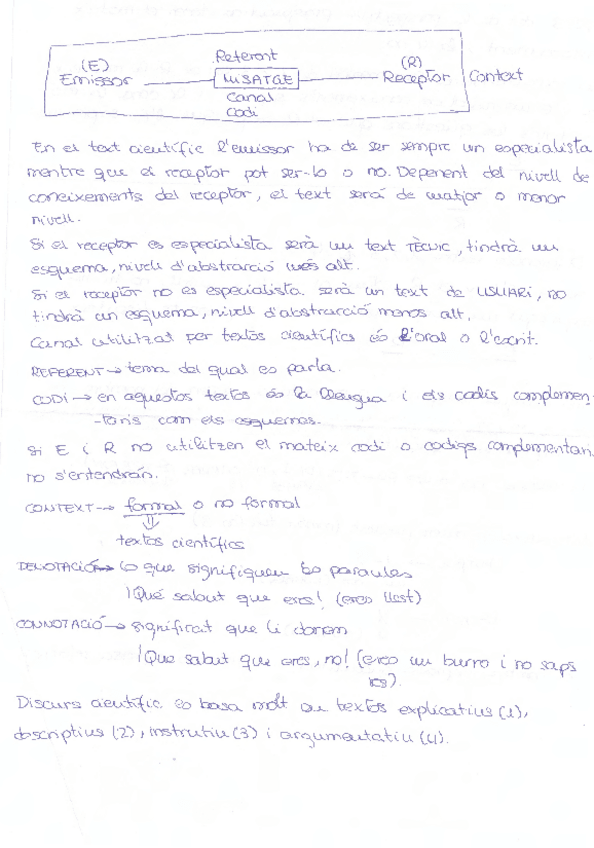 Referent
(E) (R)
Emissor MISATGE Receptor Context
Canal
Codi
En el text científic l'emissor ha de ser sempre un especialista
mentre que el receptor pot ser-lo o no. Depenent del nivell de
coneixements del receptor, el text serà de major o menor
nivell.
Si el receptor es especialista serà un text TÈCNIC, tindrà un
esquema, nivell d'abstracció més alt.
Si el receptor no es especialista serà un text de USUARI, no
tindrà un esquema, nivell d'abstracció menos alt.
Canal utilitzat per textos científics és l'oral o l'escrit.
REFERENT → tema del qual es parla.
CODI → en aquestos textos és la llengua i els codis complemen-
-taris com els esquemes.
Si E i R no utilitzen el mateix codi o codigs complementari
no s'entendrán.
CONTEXT → formal o no formal
⇓
textos científics
DENOTACIÓ → lo que signifiquen les paraules
¡Qué sabut que eres! (eres llest)
CONNOTACIÓ → significat que li donem
¡Que sabut que eres, no! (eres un burro i no saps
res).
Discurs científic es basa molt en textos explicatius (1),
descriptius (2), instrutiu (3) i argumentatiu (4).